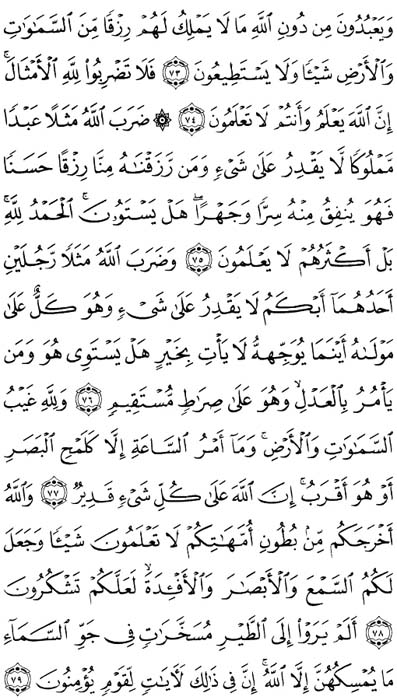 وَيَعۡبُدُونَ مِن دُونِ ٱللَّهِ مَا لَا يَمۡلِكُ لَهُمۡ رِزۡقٗا مِّنَ ٱلسَّمَٰوَٰتِ
وَٱلۡأَرۡضِ شَيۡـٔٗا وَلَا يَسۡتَطِيعُونَ ٧٣ فَلَا تَضۡرِبُواْ لِلَّهِ ٱلۡأَمۡثَالَۚ
إِنَّ ٱللَّهَ يَعۡلَمُ وَأَنتُمۡ لَا تَعۡلَمُونَ ٧٤ ۞ ضَرَبَ ٱللَّهُ مَثَلًا عَبۡدٗا
مَّمۡلُوكٗا لَّا يَقۡدِرُ عَلَىٰ شَيۡءٖ وَمَن رَّزَقۡنَٰهُ مِنَّا رِزۡقًا حَسَنٗا
فَهُوَ يُنفِقُ مِنۡهُ سِرّٗا وَجَهۡرًاۖ هَلۡ يَسۡتَوُۥنَۚ ٱلۡحَمۡدُ لِلَّهِۚ
بَلۡ أَكۡثَرُهُمۡ لَا يَعۡلَمُونَ ٧٥ وَضَرَبَ ٱللَّهُ مَثَلٗا رَّجُلَيۡنِ
أَحَدُهُمَآ أَبۡكَمُ لَا يَقۡدِرُ عَلَىٰ شَيۡءٖ وَهُوَ كَلٌّ عَلَىٰ
مَوۡلَىٰهُ أَيۡنَمَا يُوَجِّههُّ لَا يَأۡتِ بِخَيۡرٍ هَلۡ يَسۡتَوِي هُوَ وَمَن
يَأۡمُرُ بِٱلۡعَدۡلِ وَهُوَ عَلَىٰ صِرَٰطٖ مُّسۡتَقِيمٖ ٧٦ وَلِلَّهِ غَيۡبُ
ٱلسَّمَٰوَٰتِ وَٱلۡأَرۡضِۚ وَمَآ أَمۡرُ ٱلسَّاعَةِ إِلَّا كَلَمۡحِ ٱلۡبَصَرِ
أَوۡ هُوَ أَقۡرَبُۚ إِنَّ ٱللَّهَ عَلَىٰ كُلِّ شَيۡءٖ قَدِيرٞ ٧٧ وَٱللَّهُ
أَخۡرَجَكُم مِّنۢ بُطُونِ أُمَّهَٰتِكُمۡ لَا تَعۡلَمُونَ شَيۡـٔٗا وَجَعَلَ
لَكُمُ ٱلسَّمۡعَ وَٱلۡأَبۡصَٰرَ وَٱلۡأَفۡـِٔدَةَ لَعَلَّكُمۡ تَشۡكُرُونَ
٧٨ أَلَمۡ يَرَوۡاْ إِلَى ٱلطَّيۡرِ مُسَخَّرَٰتٖ فِي جَوِّ ٱلسَّمَآءِ
مَا يُمۡسِكُهُنَّ إِلَّا ٱللَّهُۚ إِنَّ فِي ذَٰلِكَ لَأٓيَٰتٖ لِّقَوۡمٖ يُؤۡمِنُونَ ٧٩